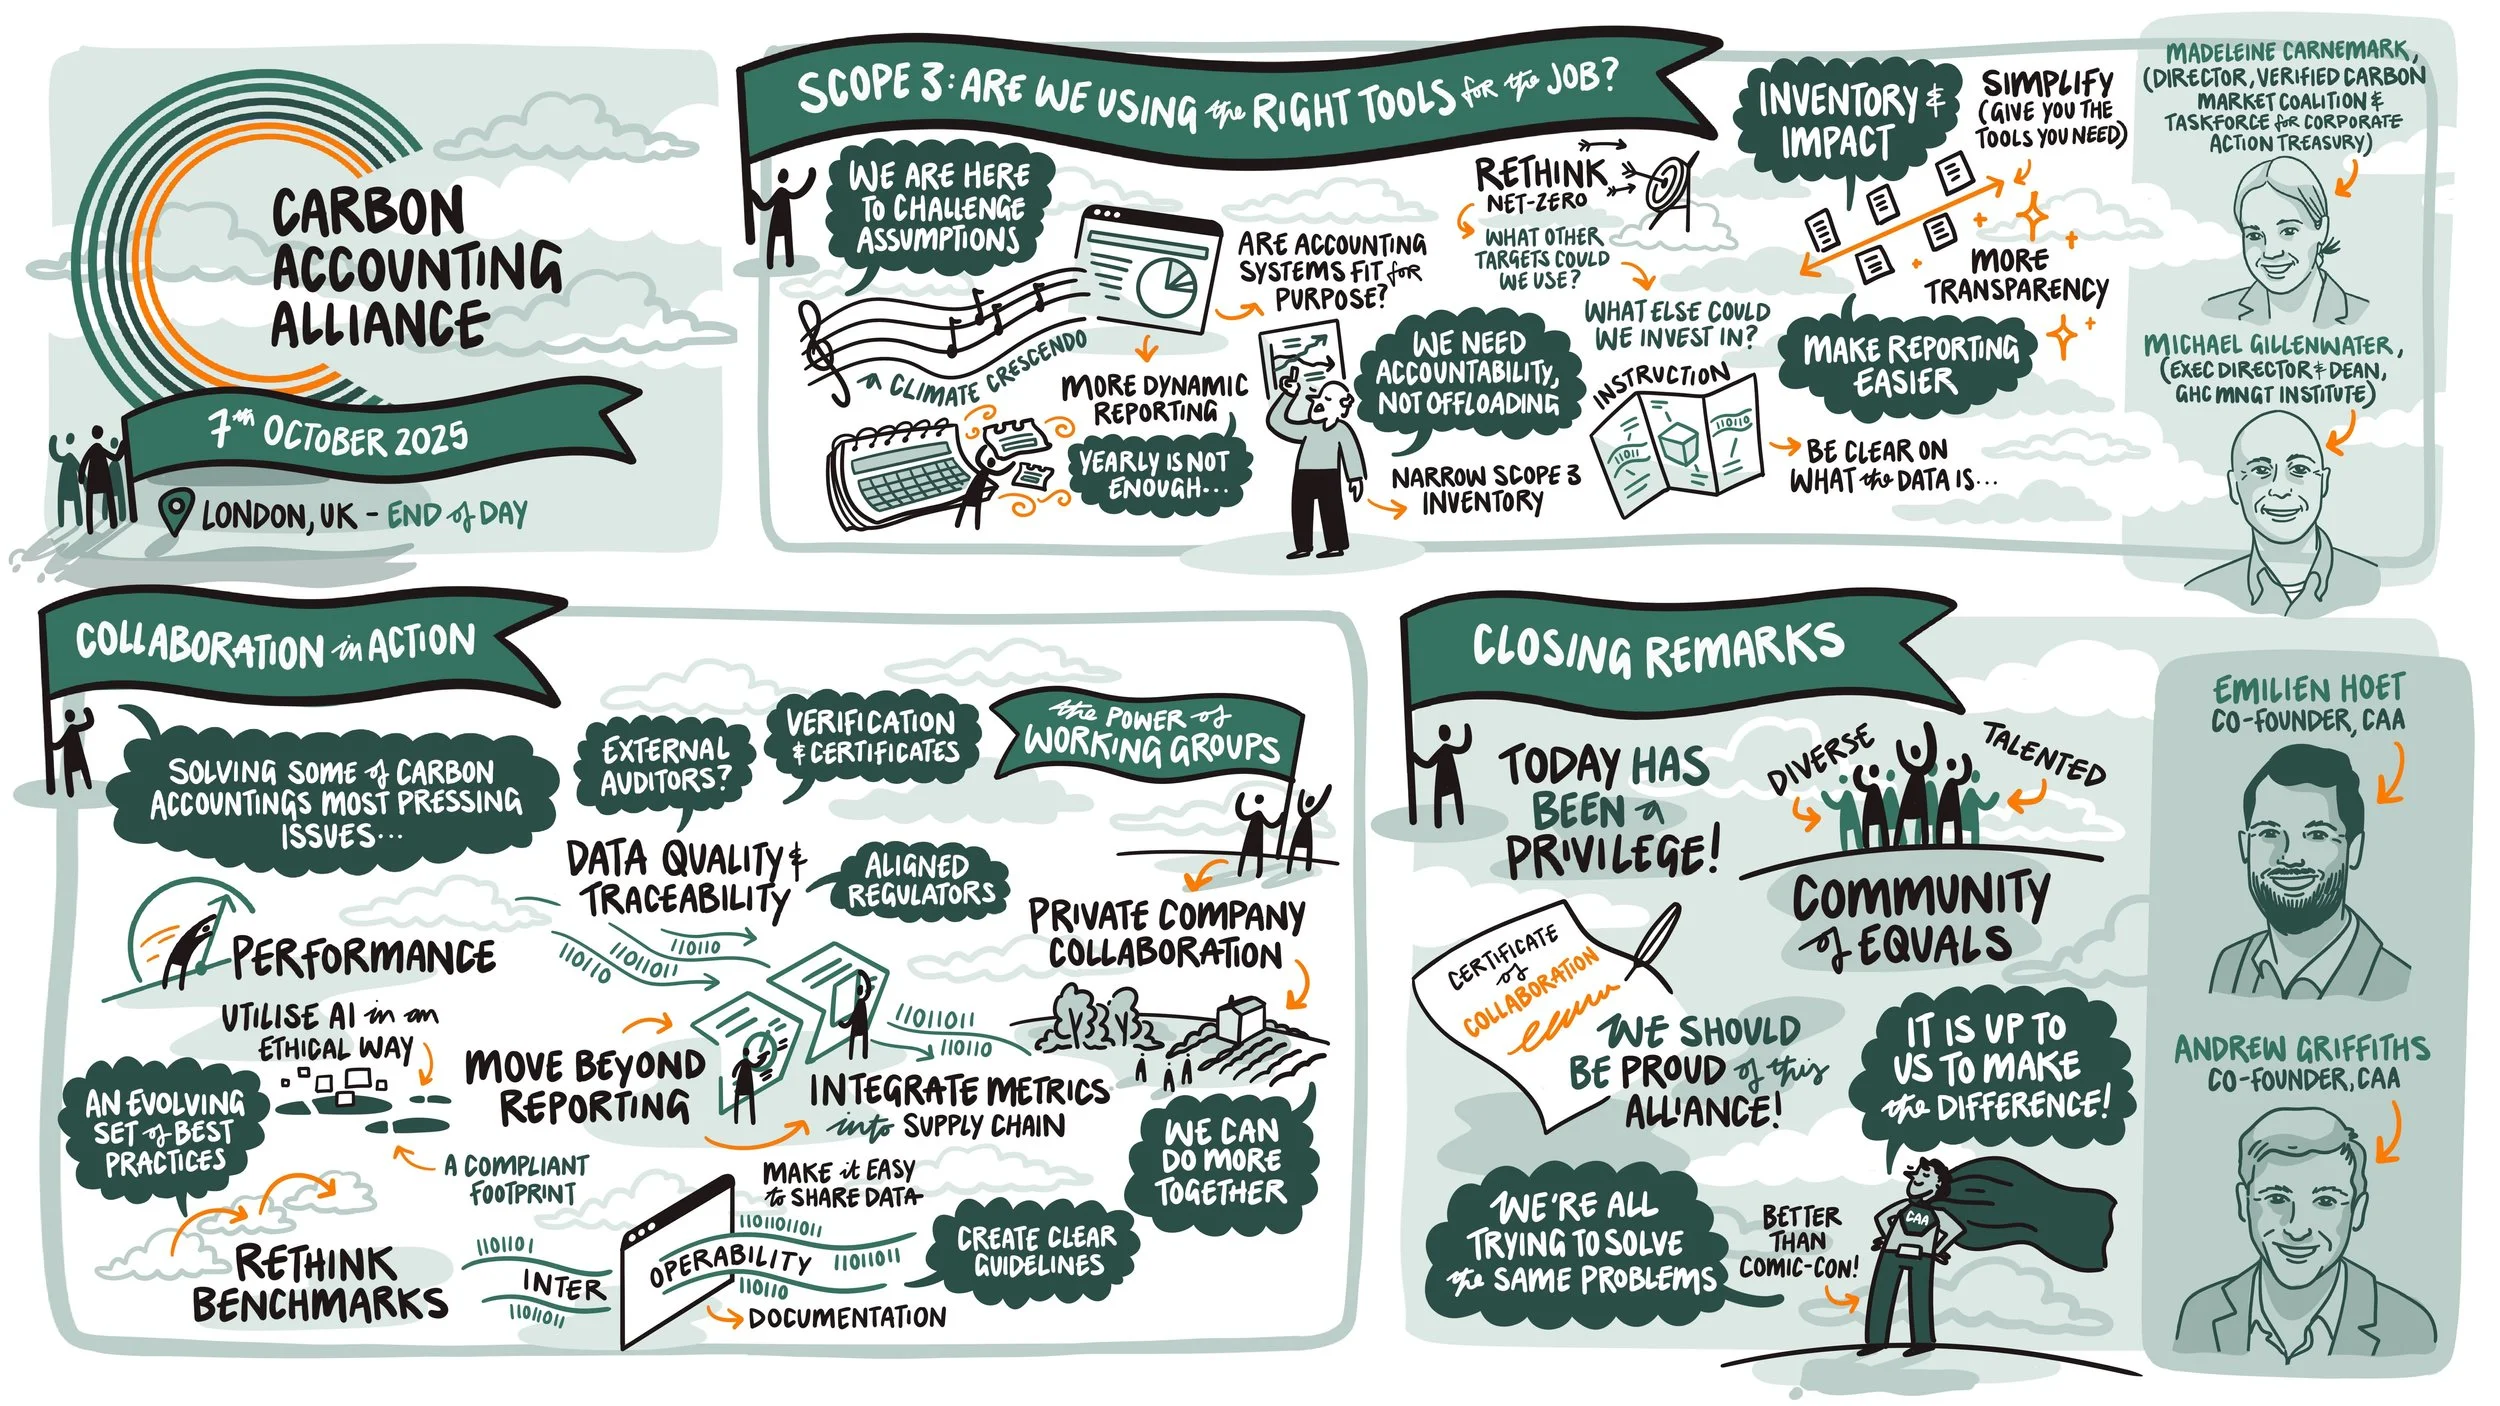 CARBON
ACCOUNTING
ALLIANCE
7TH OCTOBER 2025
LONDON, UK - END of DAY
SCOPE 3: ARE WE USING the RIGHT TOOLS for the JOB?
WE ARE HERE
TO CHALLENGE
ASSUMPTIONS
A CLIMATE CRESCENDO
ARE ACCOUNTING
SYSTEMS FIT for
PURPOSE?
MORE DYNAMIC
REPORTING
YEARLY IS NOT
ENOUGH...
WE NEED
ACCOUNTABILITY,
NOT OFFLOADING
NARROW SCOPE 3
INVENTORY
RETHINK
NET-ZERO
WHAT OTHER
TARGETS COULD
WE USE?
WHAT ELSE COULD
WE INVEST IN?
INSTRUCTION
11011
110110
BE CLEAR ON
WHAT the DATA IS...
INVENTORY &
IMPACT
SIMPLIFY
(GIVE YOU THE
TOOLS YOU NEED)
MORE
TRANSPARENCY
MAKE REPORTING
EASIER
MADELEINE CARNEMARK,
(DIRECTOR, VERIFIED CARBON
MARKET COALITION &
TASKFORCE for CORPORATE
ACTION TREASURY)
MICHAEL GILLENWATER,
(EXEC DIRECTOR & DEAN,
GHC MNGT INSTITUTE)
COLLABORATION in ACTION
SOLVING SOME of CARBON
ACCOUNTINGS MOST PRESSING
ISSUES...
EXTERNAL
AUDITORS?
VERIFICATION
& CERTIFICATES
DATA QUALITY &
TRACEABILITY
ALIGNED
REGULATORS
the POWER of
WORKING GROUPS
PRIVATE COMPANY
COLLABORATION
PERFORMANCE
UTILISE AI in an
ETHICAL WAY
AN EVOLVING
SET of BEST
PRACTICES
A COMPLIANT
FOOTPRINT
RETHINK
BENCHMARKS
110110
1101011
110110
MOVE BEYOND
REPORTING
11011011
110110
INTEGRATE METRICS
into SUPPLY CHAIN
WE CAN
DO MORE
TOGETHER
MAKE it EASY
to SHARE DATA
110110
INTER
11011011
11011011011
OPERABILITY
11011011
110110
DOCUMENTATION
CREATE CLEAR
GUIDELINES
CLOSING REMARKS
TODAY HAS
BEEN A
PRIVILEGE!
DIVERSE
TALENTED
COMMUNITY
of EQUALS
CERTIFICATE
of
COLLABORATION
WE SHOULD
BE PROUD of this
ALLIANCE!
IT IS UP TO
US TO MAKE
the DIFFERENCE!
WE'RE ALL
TRYING TO SOLVE
the SAME PROBLEMS
BETTER
THAN
COMIC-CON!
CAA
EMILIEN HOET
CO-FOUNDER, CAA
ANDREW GRIFFITHS
CO-FOUNDER, CAA